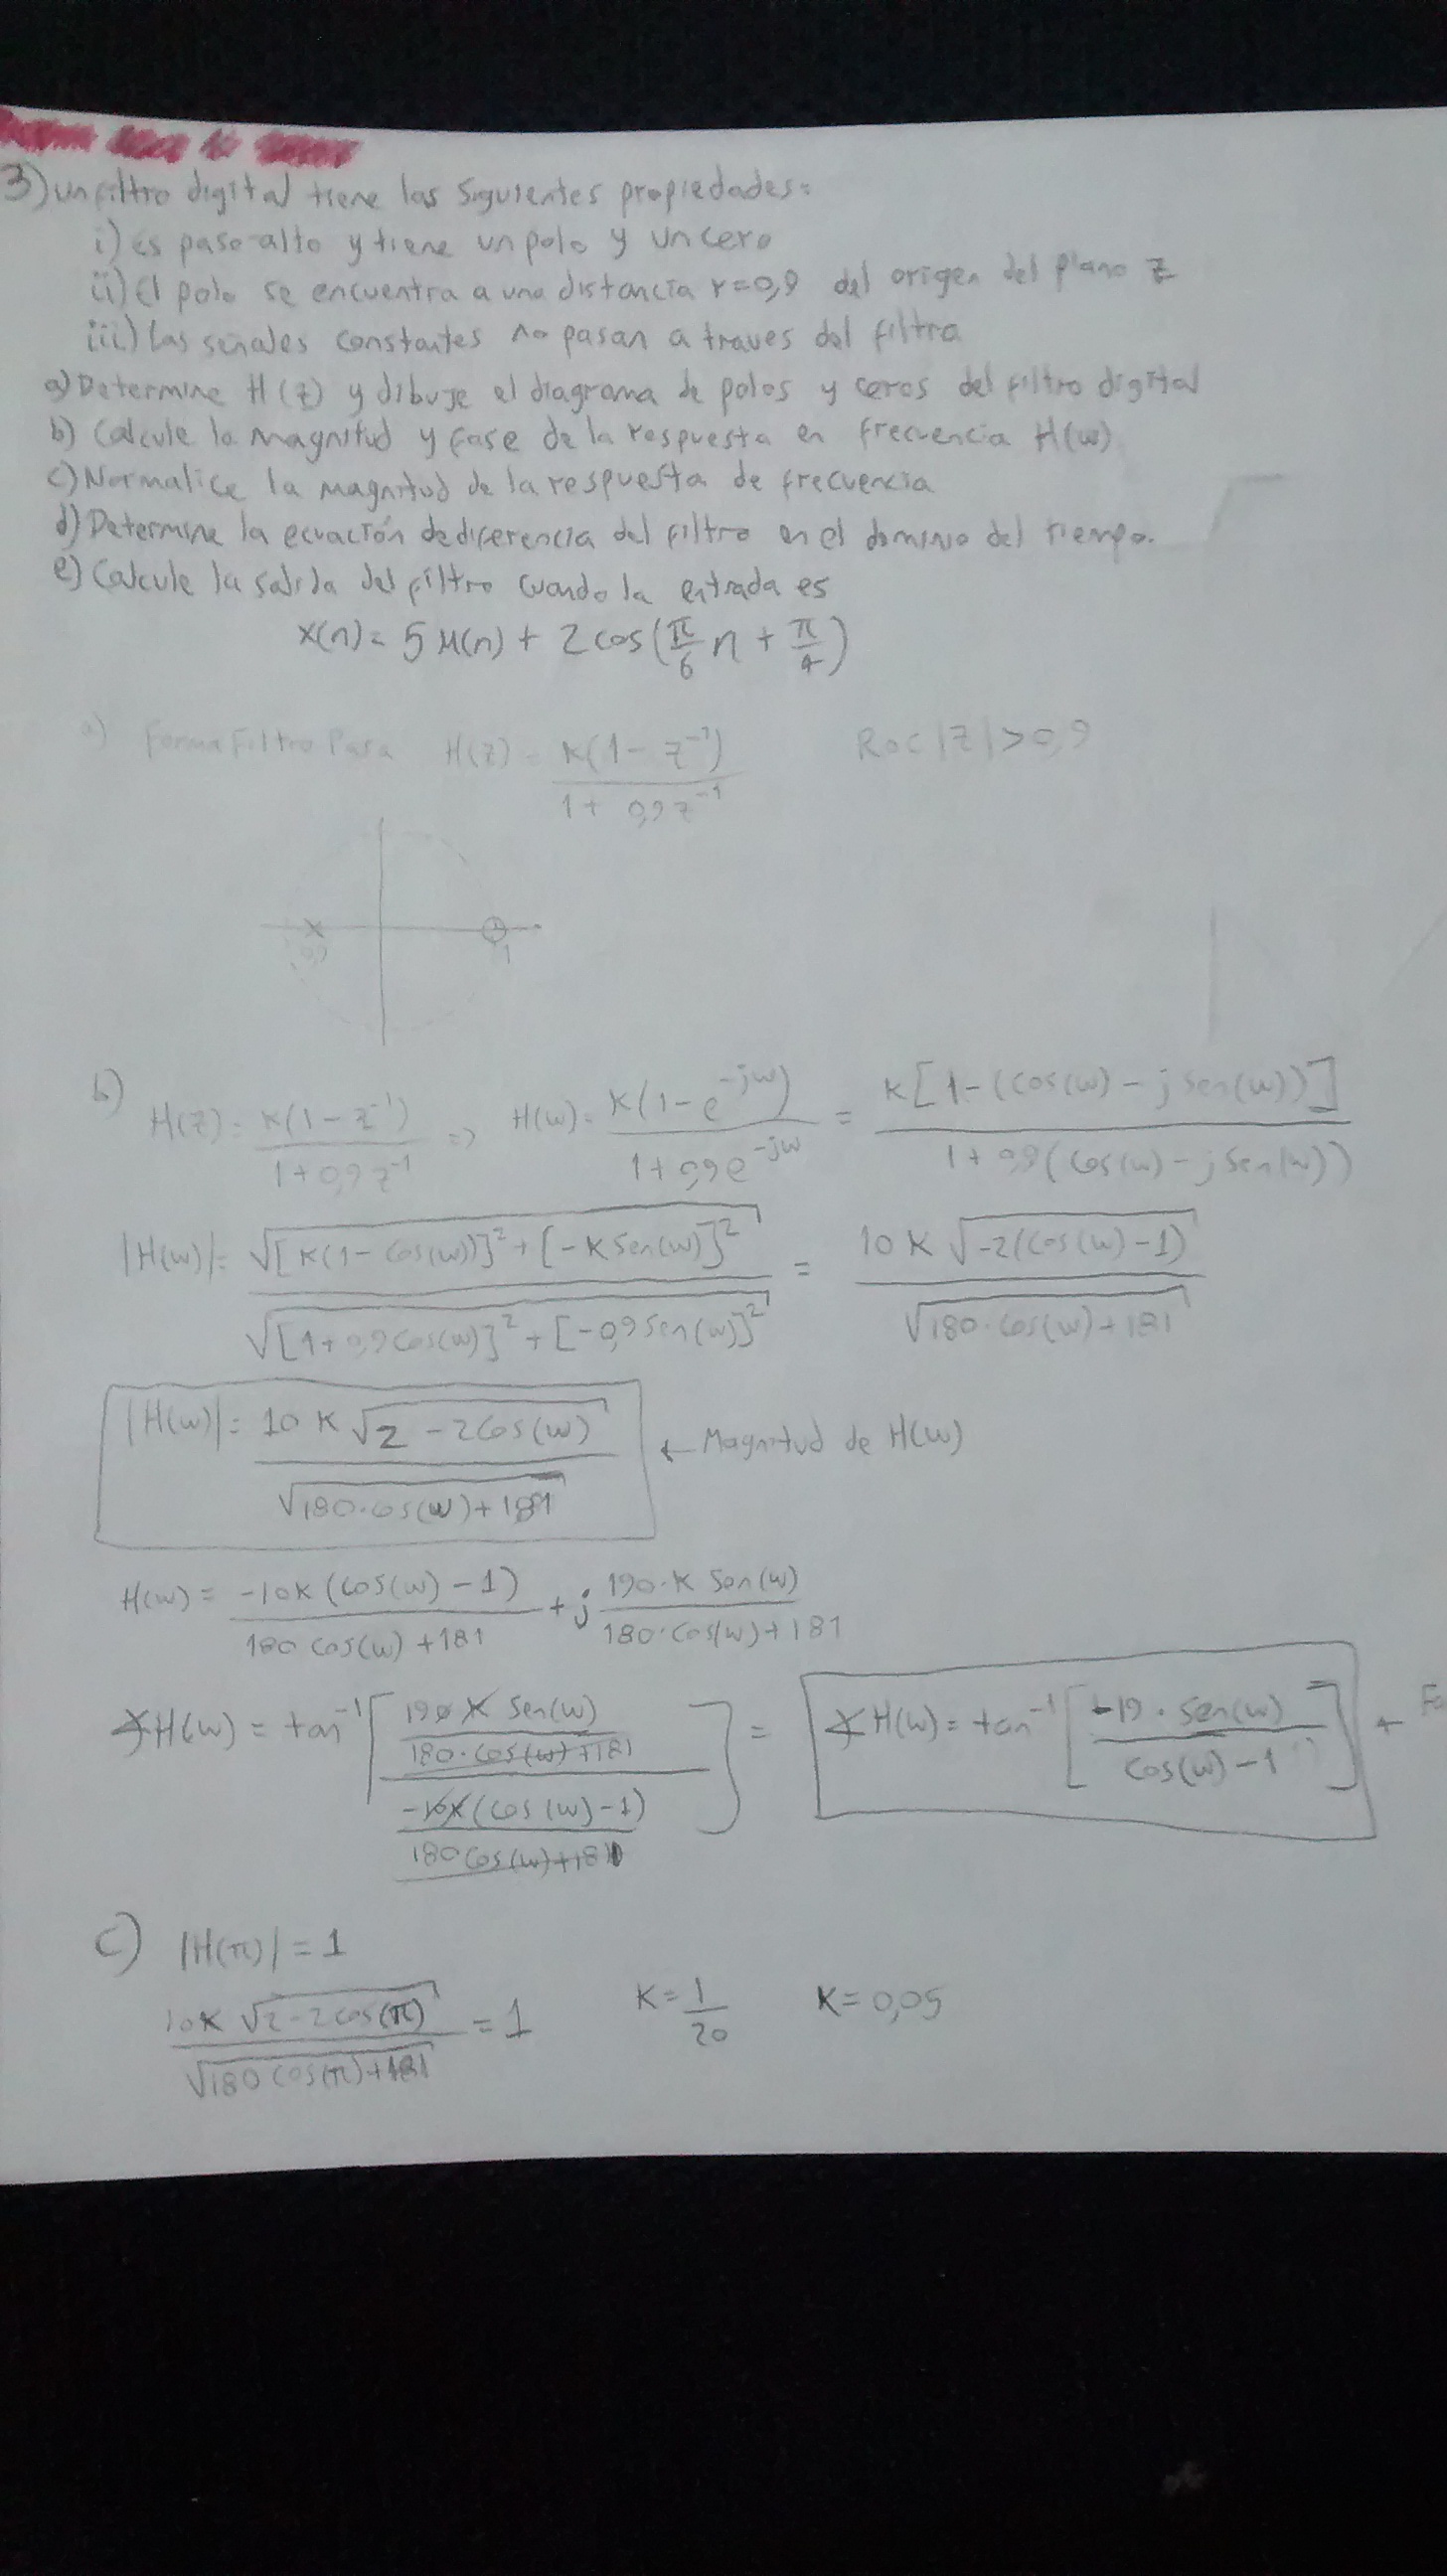 3) un filtro digital tiene las siguientes propiedades:
i) es paso-alto y tiene un polo y un cero
ii) El polo se encuentra a una distancia r=0,9 del origen del plano Z
iii) Las señales constantes no pasan a traves del filtro
a) Determine H(z) y dibuje el diagrama de polos y ceros del filtro digital
b) Calcule la magnitud y fase de la respuesta en frecuencia H(w)
c) Normalice la magnitud de la respuesta de frecuencia
d) Determine la ecuación de diferencia del filtro en el dominio del tiempo.
e) Calcule la salida del filtro cuando la entrada es
x(n) = 5 μ(n) + 2 cos(π/6 n + π/4)
a) Forma Filtro Para H(z) = K(1 - z^-1) / 1 + 0,9z^-1 ROC |Z| > 0,9
0,9 1
b) H(z) = K(1 - z^-1) / 1 + 0,9z^-1 => H(w) = K(1 - e^-jw) / 1 + 0,9e^-jw = K[1 - (cos(w) - j sen(w))] / 1 + 0,9(cos(w) - j sen(w))
|H(w)| = √[K(1 - cos(w))]² + [-K sen(w)]² / √[1 + 0,9 cos(w)]² + [-0,9 sen(w)]² = 10 K √-2(cos(w) - 1) / √180·cos(w) + 181
|H(w)| = 10 K √2 - 2cos(w) / √180·cos(w) + 181 ← Magnitud de H(w)
H(w) = -10K(cos(w) - 1) / 180 cos(w) + 181 + j 190·K Sen(w) / 180·cos(w) + 181
∡H(w) = tan^-1 [ 190 K Sen(w) / 180·cos(w) + 181 / -10K(cos(w) - 1) / 180 cos(w) + 181 ] = ∡H(w) = tan^-1 [ -19·sen(w) / cos(w) - 1 ] ←
c) |H(π)| = 1
10K √2 - 2cos(π) / √180 cos(π) + 181 = 1 K = 1/20 K = 0,05